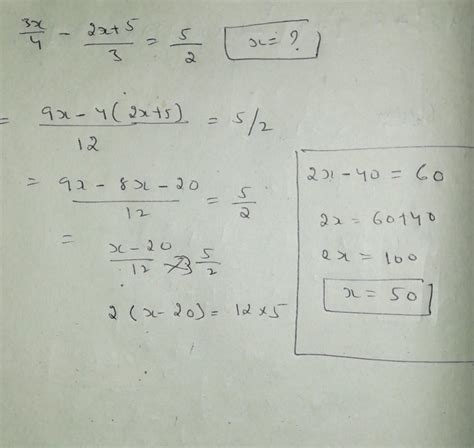 3x/4 - (2x+5)/3 = 5/2 x = ?
= (9x - 4(2x+5))/12 = 5/2
= (9x - 8x - 20)/12 = 5/2
= (x - 20)/12 = 5/2
2(x - 20) = 12 × 5
2x - 40 = 60
2x = 60+40
2x = 100
x = 50